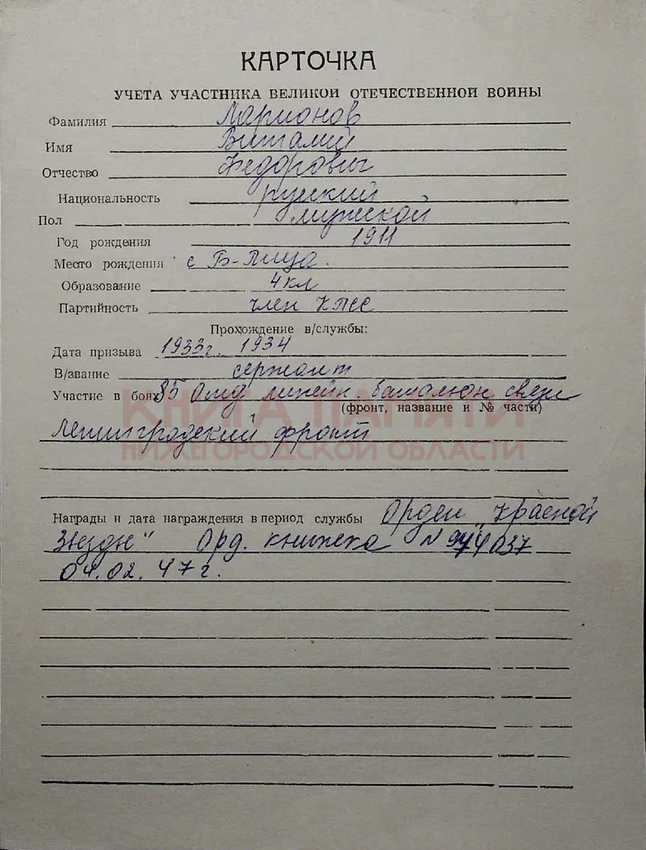 КАРТОЧКА
УЧЕТА УЧАСТНИКА ВЕЛИКОЙ ОТЕЧЕСТВЕННОЙ ВОЙНЫ
Фамилия Ларионов
Имя Виталий
Отчество Федорович
Национальность русский
Пол мужской
Год рождения 1911
Место рождения с Б-Пица.
Образование 4 кл
Партийность член КПСС
Прохождение в/службы:
Дата призыва 1933г. 1934
В/звание сержант
Участие в боях 85 Отд линейн батальон связи
(фронт, название и № части)
Ленинградский фронт
КНИГА ПАМЯТИ
НИЖЕГОРОДСКОЙ ОБЛАСТИ
Награды и дата награждения в период службы Орден "Красной
Звезды" Орд. книжка N 944037
04.02.47г.